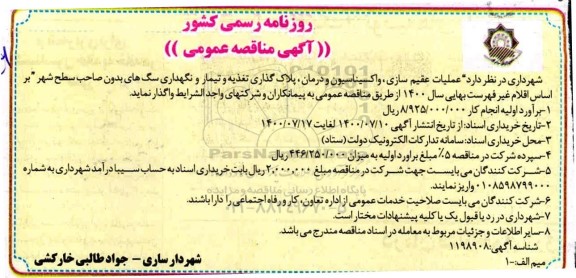 روزنامه رسمی کشور
(( آگهی مناقصه عمومی ))
شهرداری در نظر دارد" عملیات عقیم سازی، واکسیناسیون و درمان، پلاک گذاری تغذیه و تیمار و نگهداری سگ های بدون صاحب سطح شهر "بر
اساس اقلام غیر فهرست بهایی سال ۱۴۰۰ از طریق مناقصه عمومی به پیمانکاران و شرکتهای واجد الشرایط واگذار نماید.
۱-برآورد اولیه انجام کار ۸/۹۲۵/۰۰۰/۰۰۰ریال
۲-تاریخ خریداری اسناد: از تاریخ انتشار آگهی ۱۴۰۰/۰۷/۱۰ لغایت ۱۴۰۰/۰۷/۱۷
۳-محل خریداری اسناد: سامانه تدارکات الکترونیک دولت (ستاد)
۴-سپرده شرکت در مناقصه ۵٪ مبلغ برآورد اولیه به میزان ۴۴۶/۲۵۰/۰۰۰ریال
۵-شرکت کنندگان می بایست جهت شرکت در مناقصه مبلغ ۲,۰۰۰,۰۰۰ ریال بابت خریداری اسناد به حساب سیبا درآمد شهرداری به شماره
۰۱۰۸۵۹۸۷۹۹۰۰۰ واریز نمایند.
۶-شرکت کنندگان می بایست صلاحیت خدمات عمومی از اداره تعاون، کار و رفاه اجتماعی را دارا باشند.
۷-شهرداری در رد یا قبول یک یا کلیه پیشنهادات مختار است.
۸-سایر اطلاعات و جزئیات مربوط به معامله در اسناد مناقصه مندرج می باشد.
شناسه آگهی: ۱۱۹۸۹۰۸
میم الف: ۱-
شهردار ساری - جواد طالبی خارکشی